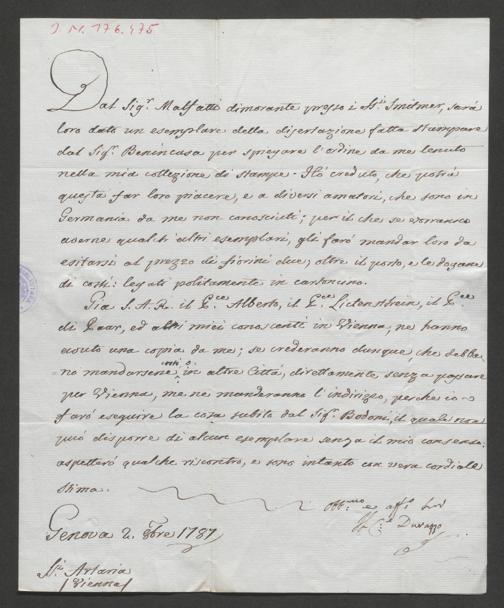 I. N. 176.475
Dal Sig.r Malfatti dimorante presso i SS.ri Smitmer, sarà
loro dato un esemplare della disertazione fatta stampare
dal Sig.r Benincasa per spiegare l'ordine da me tenuto
nella mia collezione di stampe. Hò creduto, che potrà
questa far loro piacere, e a diversi amatori, che sono in
Germania da me non conosciuti; per il che se vorranno
averne qualch'altri esemplari, gli farò mandar loro da
esitarsi al prezzo di fiorini due; oltre il porto, e le dogane
di costì: legati politamente in cartoncino.
Già S. A. R. il P.ce Alberto, il P.ce Lictensthein, il P.ce
di Paar, ed altri miei conoscenti in Vienna, ne hanno
avuto una copia da me; se crederanno dunque, che debba-
no mandarsene in altre Città, direttamente senza passare
per Vienna, me ne manderanno l'indirizzo, perche io
farò eseguire la cosa subito dal Sig.r Bodoni, il quale non
può disporre di alcun esemplare senza il mio consenso:
aspetterò qualche riscontro, e sono intanto con vera cordiale
stima.
Durazzo
Genova 2. 8bre 1787
SS.ri Artaria
/Vienna/